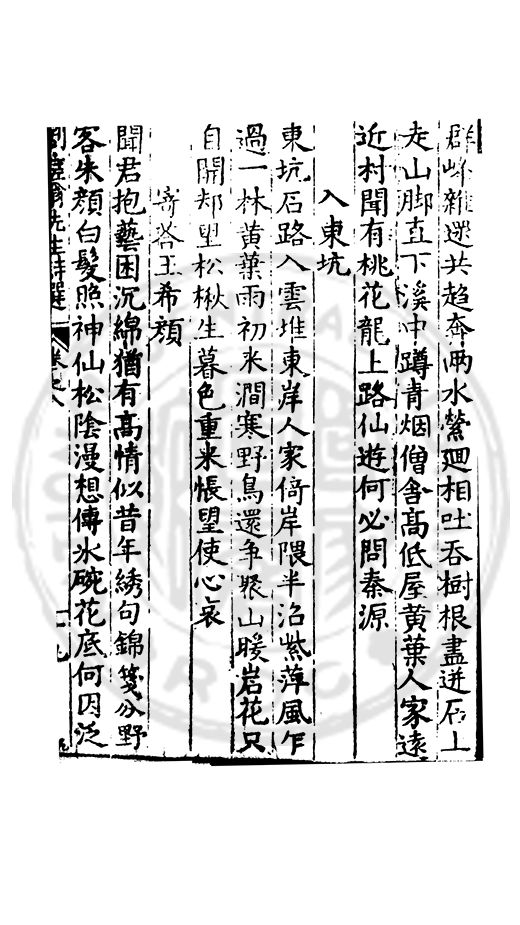 群峰雜遝共趨奔兩水縈廻相吐吞樹根盡迸石上
走山脚直下溪中蹲青烟僧舍高低屋黄葉人家遠
近村聞有桃花龍上路仙遊何必問秦源
入東坑
東坑石路入雲堆東岸人家倚岸隈半沼紫萍風乍
過一林黄葉雨初来澗寒野鳥還争聚山暖岩花只
自開却望松楸生暮色重来悵望使心哀
寄答王希顔
聞君抱藝困沉綿猶有髙情似昔年綉句錦箋分野
客朱顔白髮照神仙松陰漫想傳氷碗花底何因泛
先生詩選